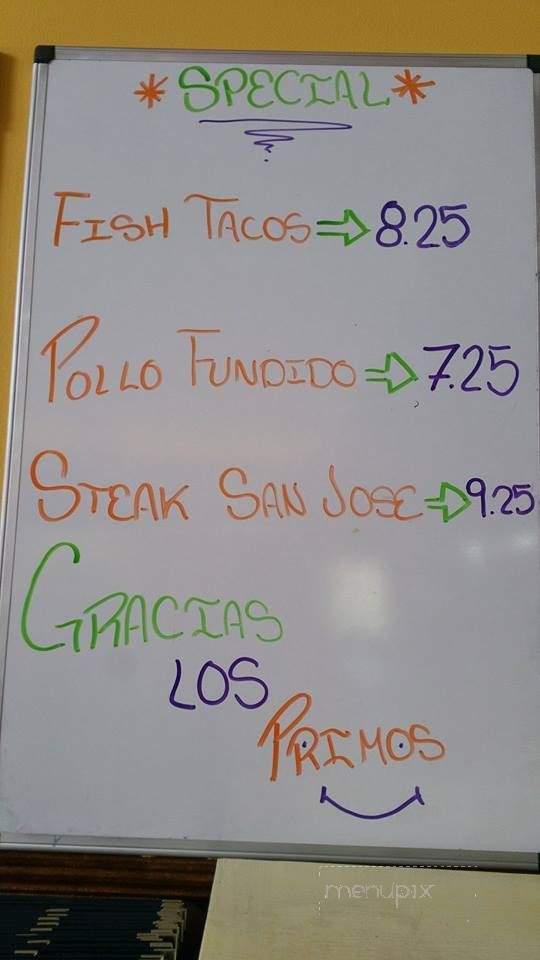 * SPECIAL *
FISH TACOS ⇨ 8.25
POLLO FUNDIDO ⇨ 7.25
STEAK SAN JOSE ⇨ 9.25
GRACIAS
LOS
PRIMOS
menupix